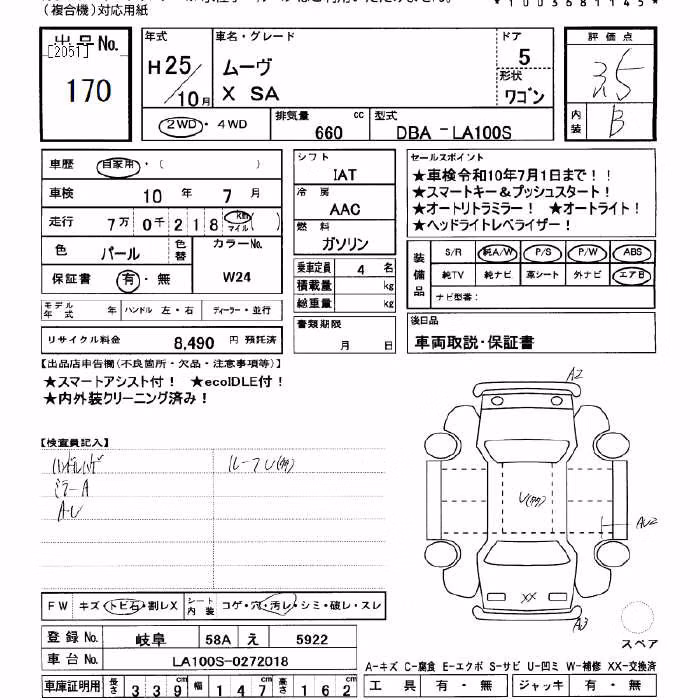 （複合機）対応用紙
*1003681145*
出品No.
[2051]
170
年式
H25/10月
車名・グレード
ムーヴ
X SA
ドア
5
形状
ワゴン
評価点
3.5
内装
B
2WD・4WD
排気量 660 cc
型式 DBA-LA100S
車歴 自家用・（ ）
車検 10年 7月
走行 7万0千218 km マイル（ ）
色 パール
色替
カラーNo. W24
保証書 有・無
モデル年式 年
ハンドル 左・右
ディーラー・並行
リサイクル料金 8,490円 預託済
シフト
IAT
冷房
AAC
燃料
ガソリン
乗車定員 4名
積載量 kg
総重量 kg
書類期限
月 日
セールスポイント
★車検令和10年7月1日まで！！
★スマートキー＆プッシュスタート！
★オートリトラミラー！ ★オートライト！
★ヘッドライトレベライザー！
装備品
S/R 純A/W P/S P/W ABS
純TV 純ナビ 革シート 外ナビ エアB
ナビ型番：
後日品
車両取説・保証書
【出品店申告欄（不良箇所・欠品・注意事項等）】
★スマートアシスト付！ ★ecoIDLE付！
★内外装クリーニング済み！
【検査員記入】
ルーフU(多)
ミラーA
AU
A2
U(多)
AU2
XX
A3
スペア
FW キズ・トビ石・割レX
シート内装 コゲ・穴・汚レ・シミ・破レ・スレ
登録No. 岐阜 58A え 5922
車台No. LA100S-0272018
車庫証明用 長さ 339 幅 147 高さ 162
A-キズ C-腐食 E-エクボ S-サビ U-凹ミ W-補修 XX-交換済
工具 有・無 ジャッキ 有・無